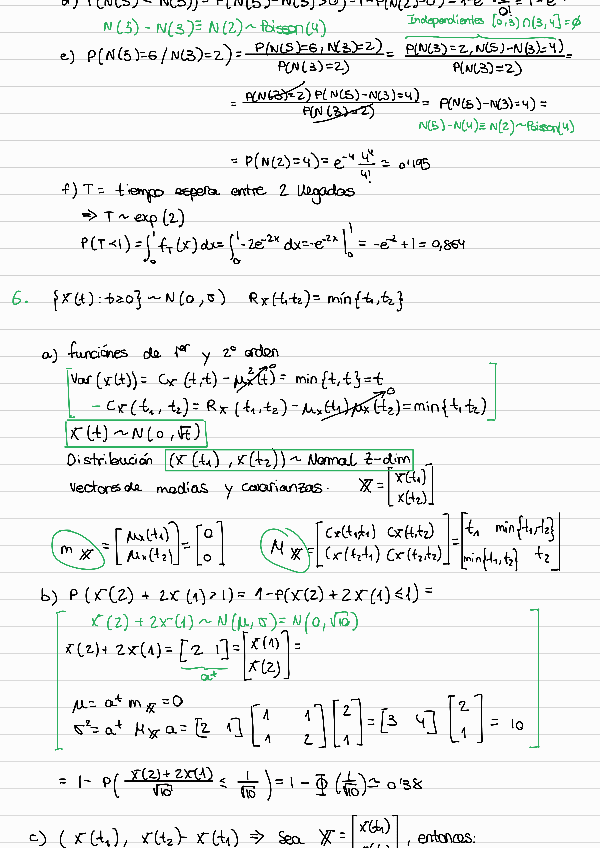 N(5) - N(3) ≡ N(2) ~ Poisson(4)
Independientes [0,3) ∩ [3,4] = ∅
e) P(N(5)=6 / N(3)=2) = P(N(5)=6, N(3)=2) / P(N(3)=2) = P(N(3)=2, N(5)-N(3)=4) / P(N(3)=2) =
= P(N(3)=2) P(N(5)-N(3)=4) / P(N(3)=2) = P(N(5)-N(3)=4) =
N(5)-N(4) ≡ N(2) ~ Poisson(4)
= P(N(2)=4) = e^-4 4^4/4! ≃ 0'195
f) T = tiempo espera entre 2 llegadas
⇒ T ~ exp(2)
P(T<1) = ∫₀¹ f_T(x) dx = ∫₀¹ -2e^-2x dx = -e^-2x |₀¹ = -e^-2 + 1 = 0,864
6. {X(t): t≥0} ~ N(0, σ) R_X(t₁,t₂) = min{t₁,t₂}
a) funciónes de 1er y 2º orden
Var(X(t)) = C_X(t,t) - μ_X²(t) = min{t,t} = t
- C_X(t₁,t₂) = R_X(t₁,t₂) - μ_X(t₁) μ_X(t₂) = min{t₁,t₂}
X(t) ~ N(0, √t)
Distribución (X(t₁), X(t₂)) ~ Normal 2-dim
Vectores de medias y covarianzas. X = [X(t₁) X(t₂)]
m_X = [μ_X(t₁) μ_X(t₂)] = [0 0] M_X = [C_X(t₁t₁) C_X(t₁t₂) C_X(t₂t₁) C_X(t₂t₂)] = [t₁ min{t₁,t₂} min{t₁,t₂} t₂]
b) P(X(2) + 2X(1) > 1) = 1 - P(X(2) + 2X(1) ≤ 1) =
X(2) + 2X(1) ~ N(μ, σ) = N(0, √10)
X(2) + 2X(1) = [2 1] = [X(1) X(2)] =
a^t
μ = a^t m_X = 0
σ² = a^t M_X a = [2 1] [1 1 1 2] [2 1] = [3 4] [2 1] = 10
= 1 - P( X(2)+2X(1) / √10 ≤ 1/√10 ) = 1 - Φ(1/√10) ≃ 0'38
c) (X(t₁), X(t₂) - X(t₁) ⇒ Sea X = [X(t₁) , entonces: